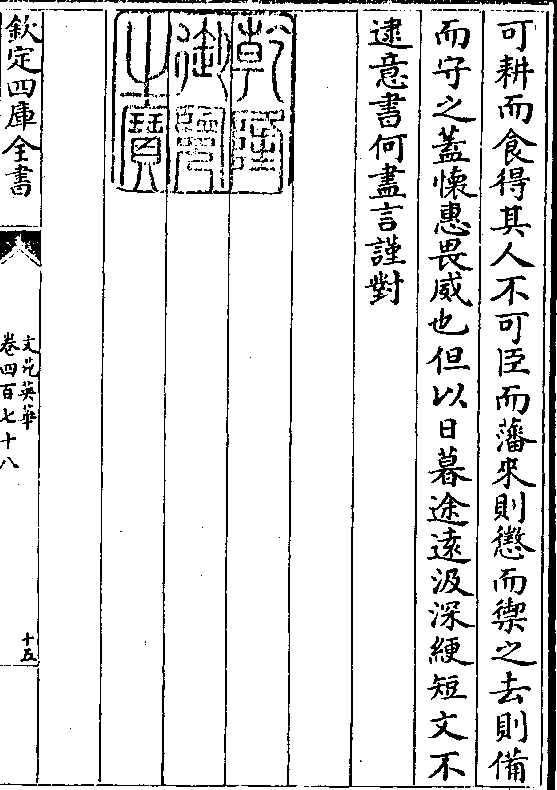 可耕而食得其人不可臣而藩來則懲而禦之去則備
而守之蓋懷惠畏威也但以日暮途遠汲深綆短文不
逮意書何盡言謹對
乾隆
御覽
之寶
欽定四庫全書
文苑英華
卷四百七十八
十五